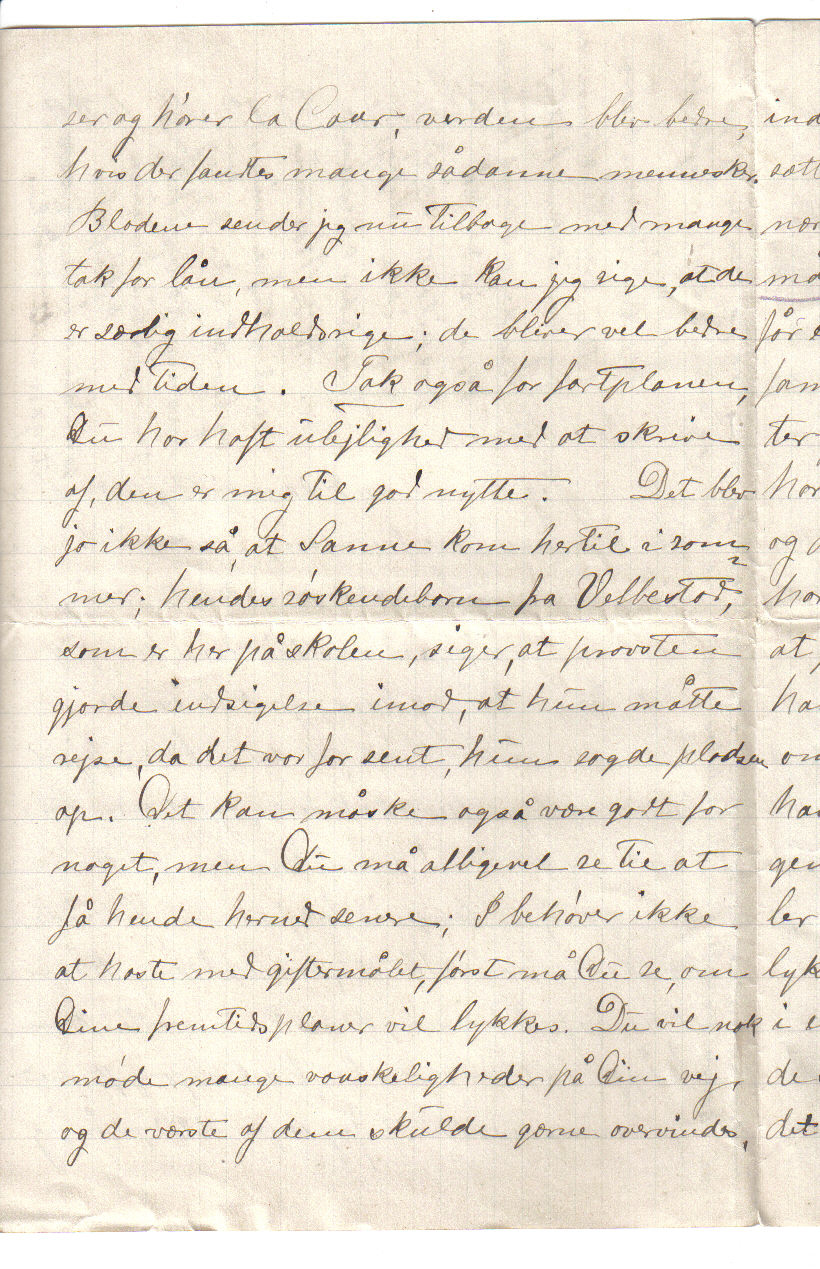 ser og hører la Cour, verden blev bedre,
hvis der fandtes mange sådanne mennesker.
Bladene sender jeg nu tilbage med mange
tak for lån, men ikke kan jeg sige, at de
er særlig indholdsrige; de bliver vel bedre
med tiden. Tak også for fartplanen,
Du har haft ulejlighed med at skrive
af, den er mig til god nytte. Det blev
jo ikke så, at Sanne kom hertil i som=
mer; hendes søskendebarn fra Velbestad,
som er her på skolen, siger, at provsten
gjorde indsigelse imod, at hun måtte
rejse, da det var for sent, hun sagde pladsen
op. Det kan måske også være godt for
noget, men Du må alligevel se til at
få hende herned senere; I behøver ikke
at haste med giftermålet, først må Du se, om
Dine fremtidsplaner vil lykkes. Du vil nok
møde mange vanskeligheder på Din vej,
og de værste af dem skulde gærne overvindes,
ind
sætt
nær
må
får
fam
ter
hør
og
har
at
ha
om
ha
gen
ler
lyk
i
de
det